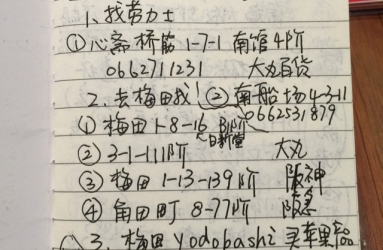 1、找劳力士
① 心斋桥筋1-7-1 南馆4阶
0662711231 大丸百货
2、去梅田找! ② 南船场4-3-11
0662531879
① 梅田1-8-16 B1阶
② 3-1-1 11阶 大丸
③ 梅田1-13-13 9阶 阪神
④ 角田町 8-7 7阶 阪急
3、梅田 yodobashi